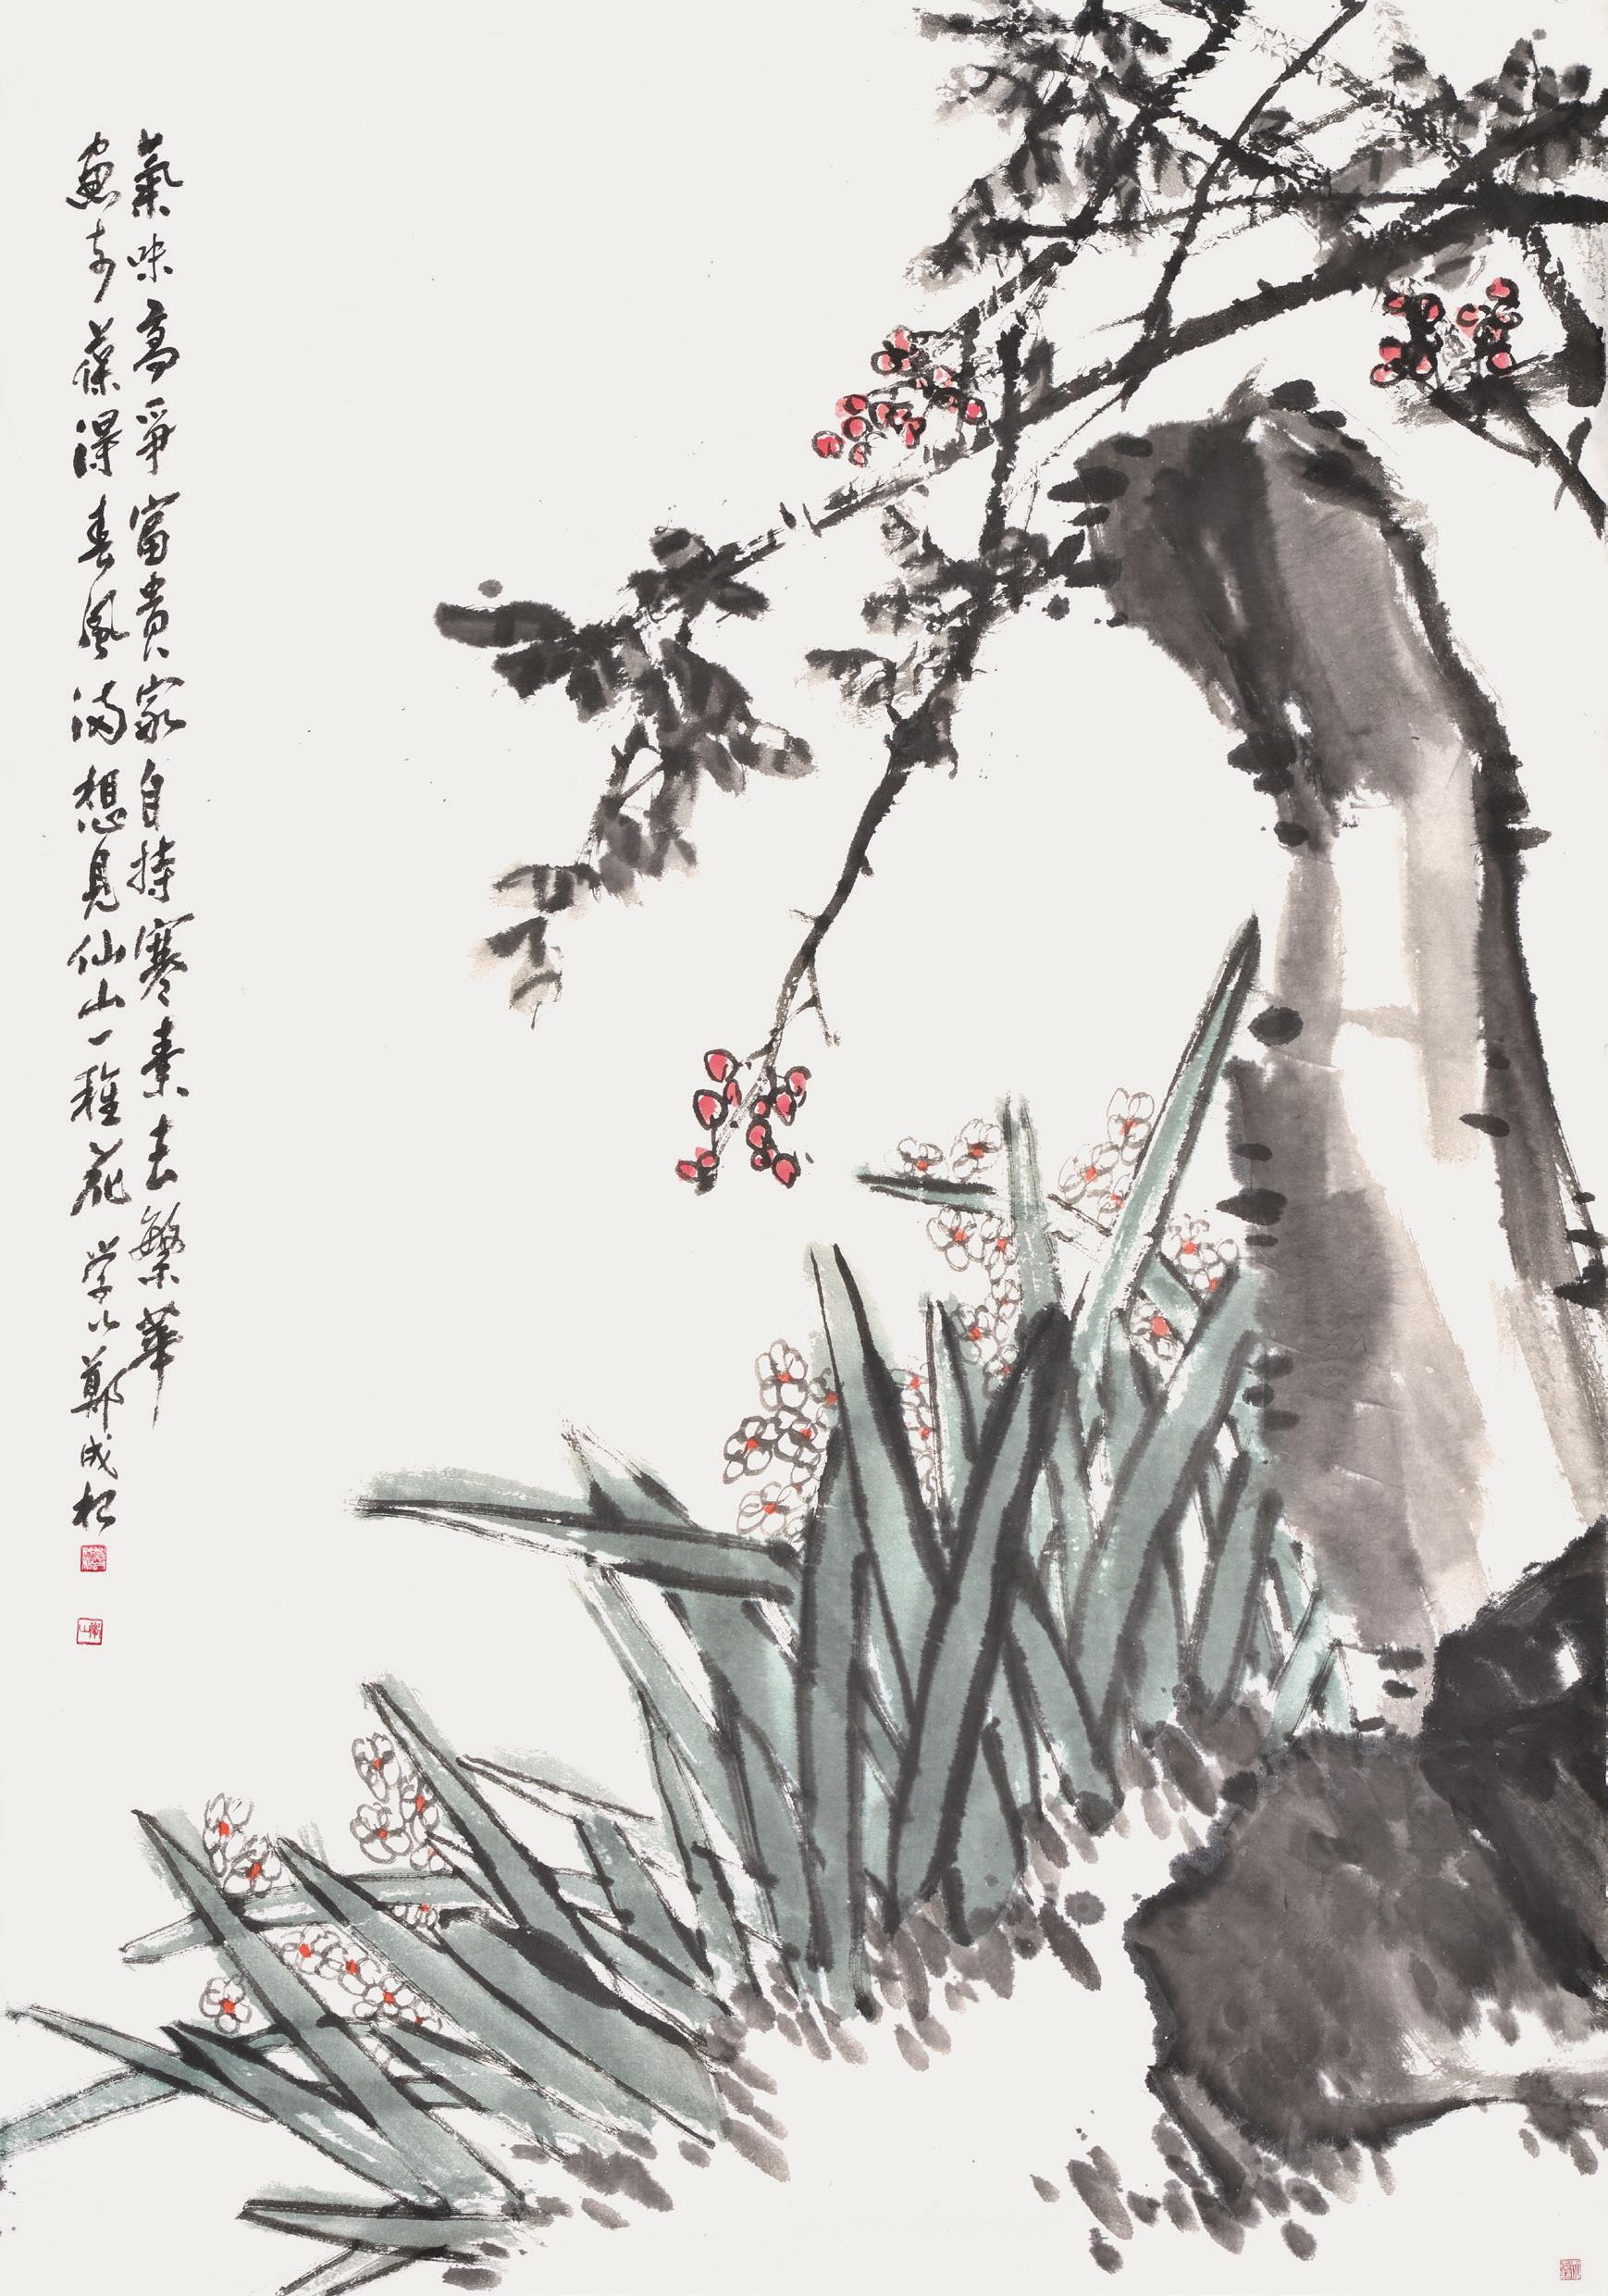 氣味高爭富貴家自持寒素去繁華
窗前葆得春風滿想見仙山一種花 學山鄭成松